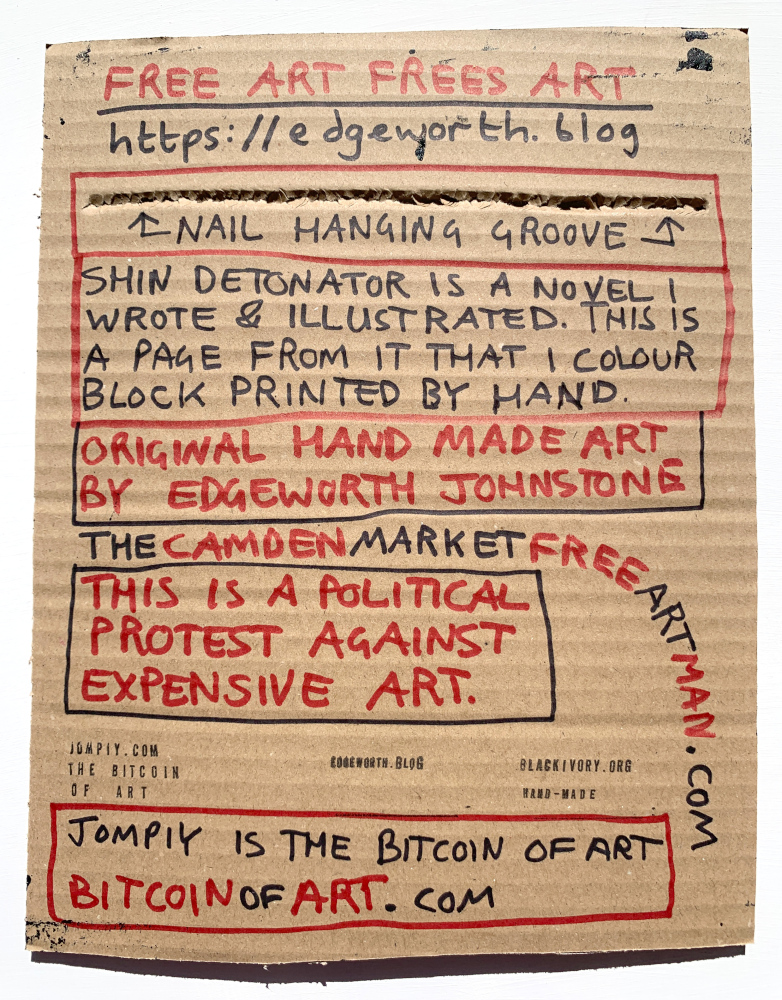 FREE ART FREES ART
https://edgeworth.blog
↑NAIL HANGING GROOVE↑
SHIN DETONATOR IS A NOVEL I
WROTE & ILLUSTRATED. THIS IS
A PAGE FROM IT THAT I COLOUR
BLOCK PRINTED BY HAND.
ORIGINAL HAND MADE ART
BY EDGEWORTH JOHNSTONE
THECAMDENMARKETFREEARTMAN.COM
THIS IS A POLITICAL
PROTEST AGAINST
EXPENSIVE ART.
JOMPIY.COM
THE BITCOIN
OF ART
EDGEWORTH.BLOG
BLACKIVORY.ORG
HAND-MADE
JOMPIY IS THE BITCOIN OF ART
BITCOINOFART.COM